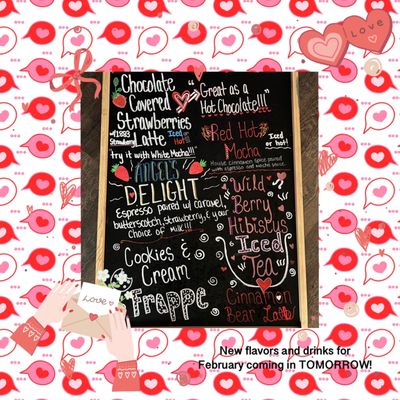 Chocolate
Covered
Strawberries
Latte
w/ 1883
Strawberry!
Iced
or Hot!!
try it with White Mocha!!!
"Great as a
Hot Chocolate!!!"
Red Hot
Mocha
Iced
or hot!
House Cinnamon spice paired
with espresso and mocha sauce.
ANGELS
DELIGHT
Espresso paired w/ caramel,
butterscotch, strawberry, & your
Choice of Milk!!!
Wild
Berry
Hibiscus
Iced
Tea
Cookies &
Cream
Frappe
Cinnamon
Bear
Love
Love
New flavors and drinks for
February coming in TOMORROW!